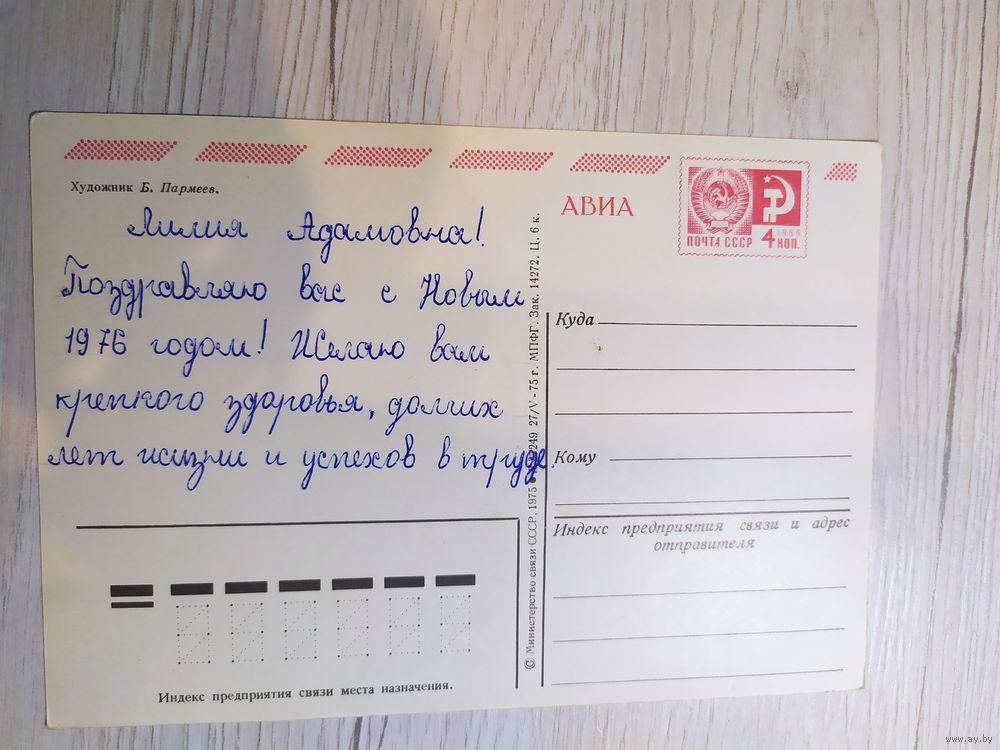 Художник Б. Пармеев.
Лилия Адамовна!
Поздравляю вас с Новым
1976 годом! Желаю вам
крепкого здоровья, долгих
лет жизни и успехов в труде.
Индекс предприятия связи места назначения.
© Министерство связи СССР, 1975 249 27/V-75 г. МПФГ. Зак. 14272. Ц. 6 к.
АВИА
ПОЧТА СССР 4 КОП.
1966
Куда
Кому
Индекс предприятия связи и адрес
отправителя
www.ay.by